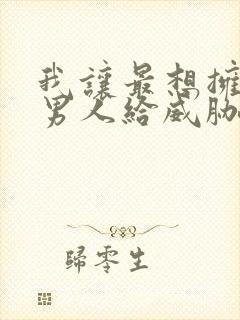 我讓最想擁
男人給威脅
歸零生